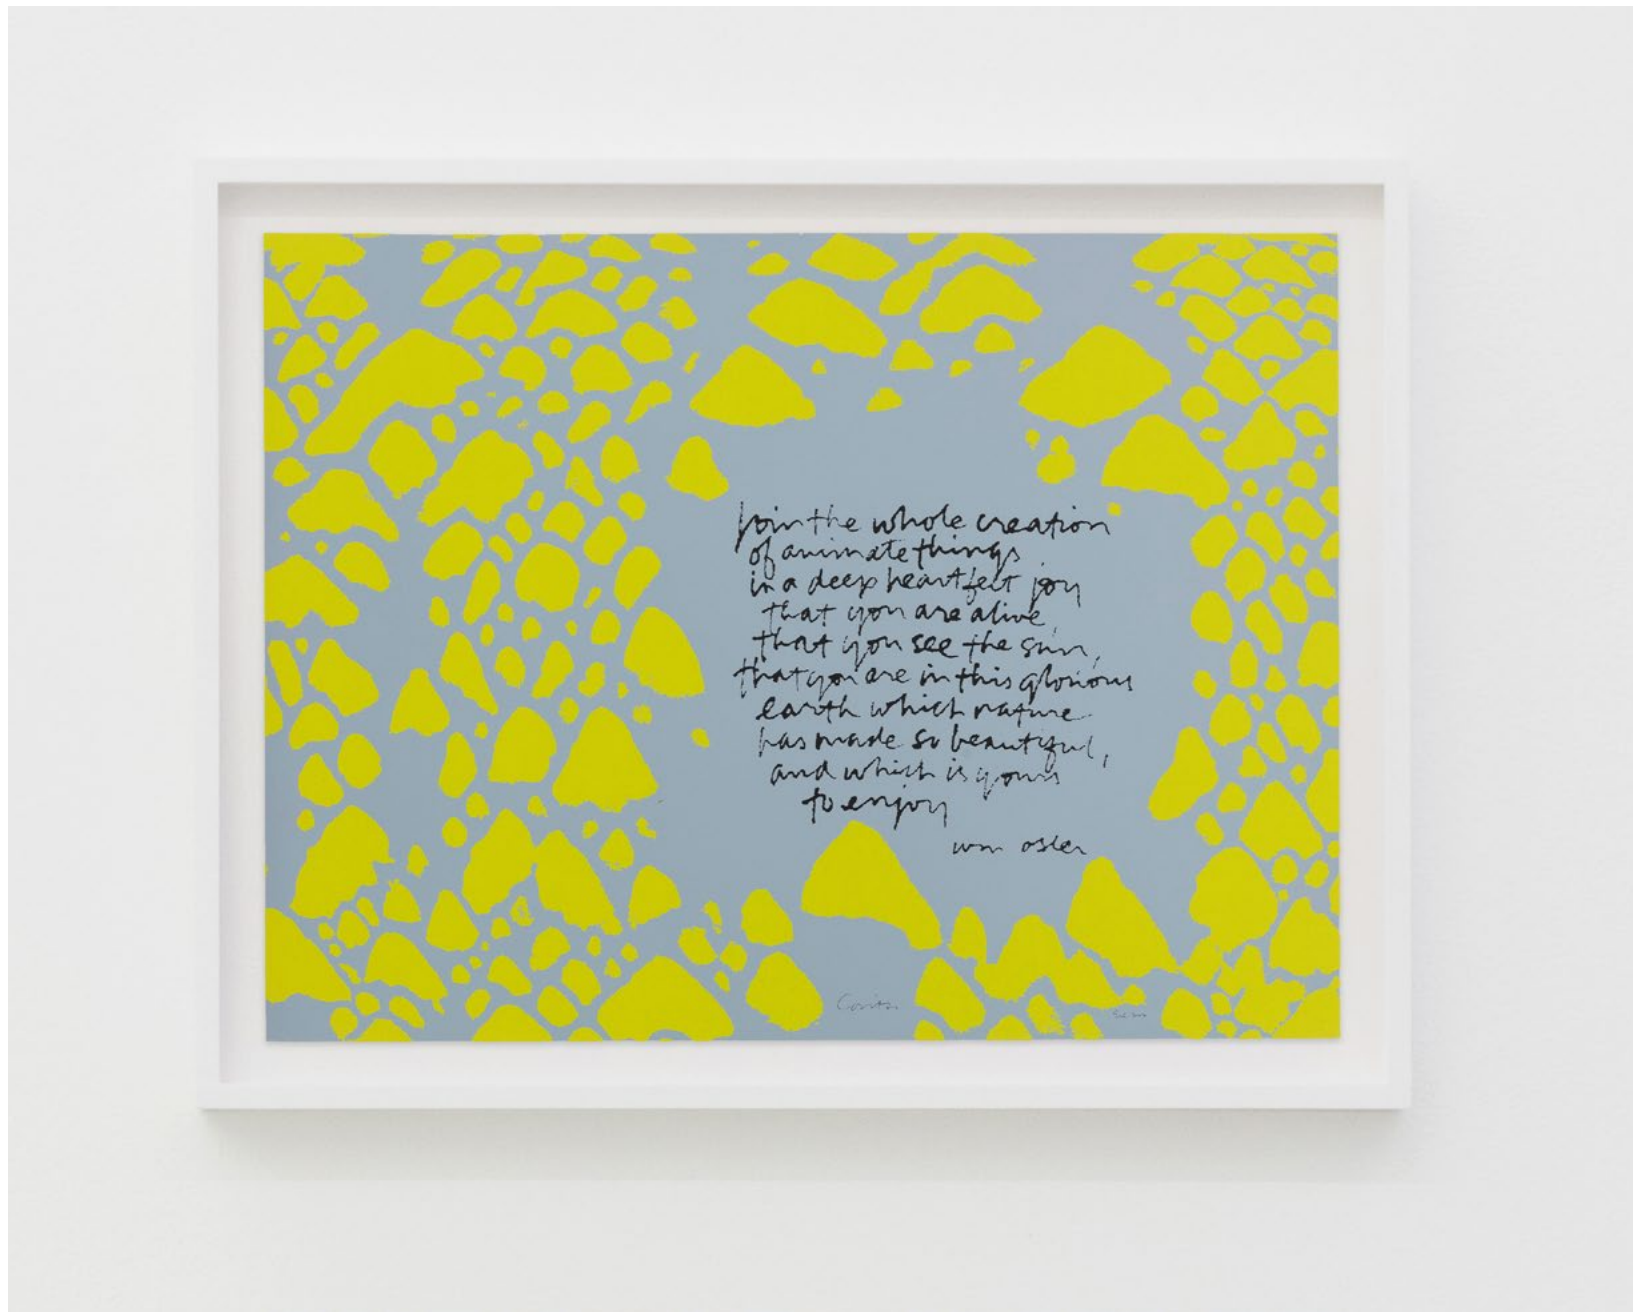 join the whole creation
of animate things
in a deep heartfelt joy
that you are alive,
that you see the sun,
that you are in this glorious
earth which nature
has made so beautiful,
and which is yours
to enjoy
wm osler
Corita